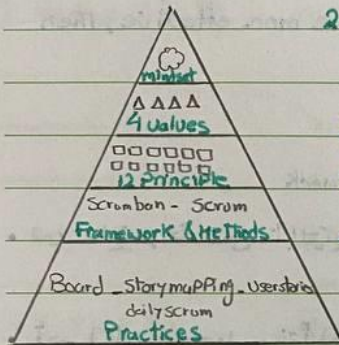 2
mindset
4 values
12 Principle
Scrumban - Scrum
Framework & Methods
Board - Storymapping - Userstories
daily scrum
Practices